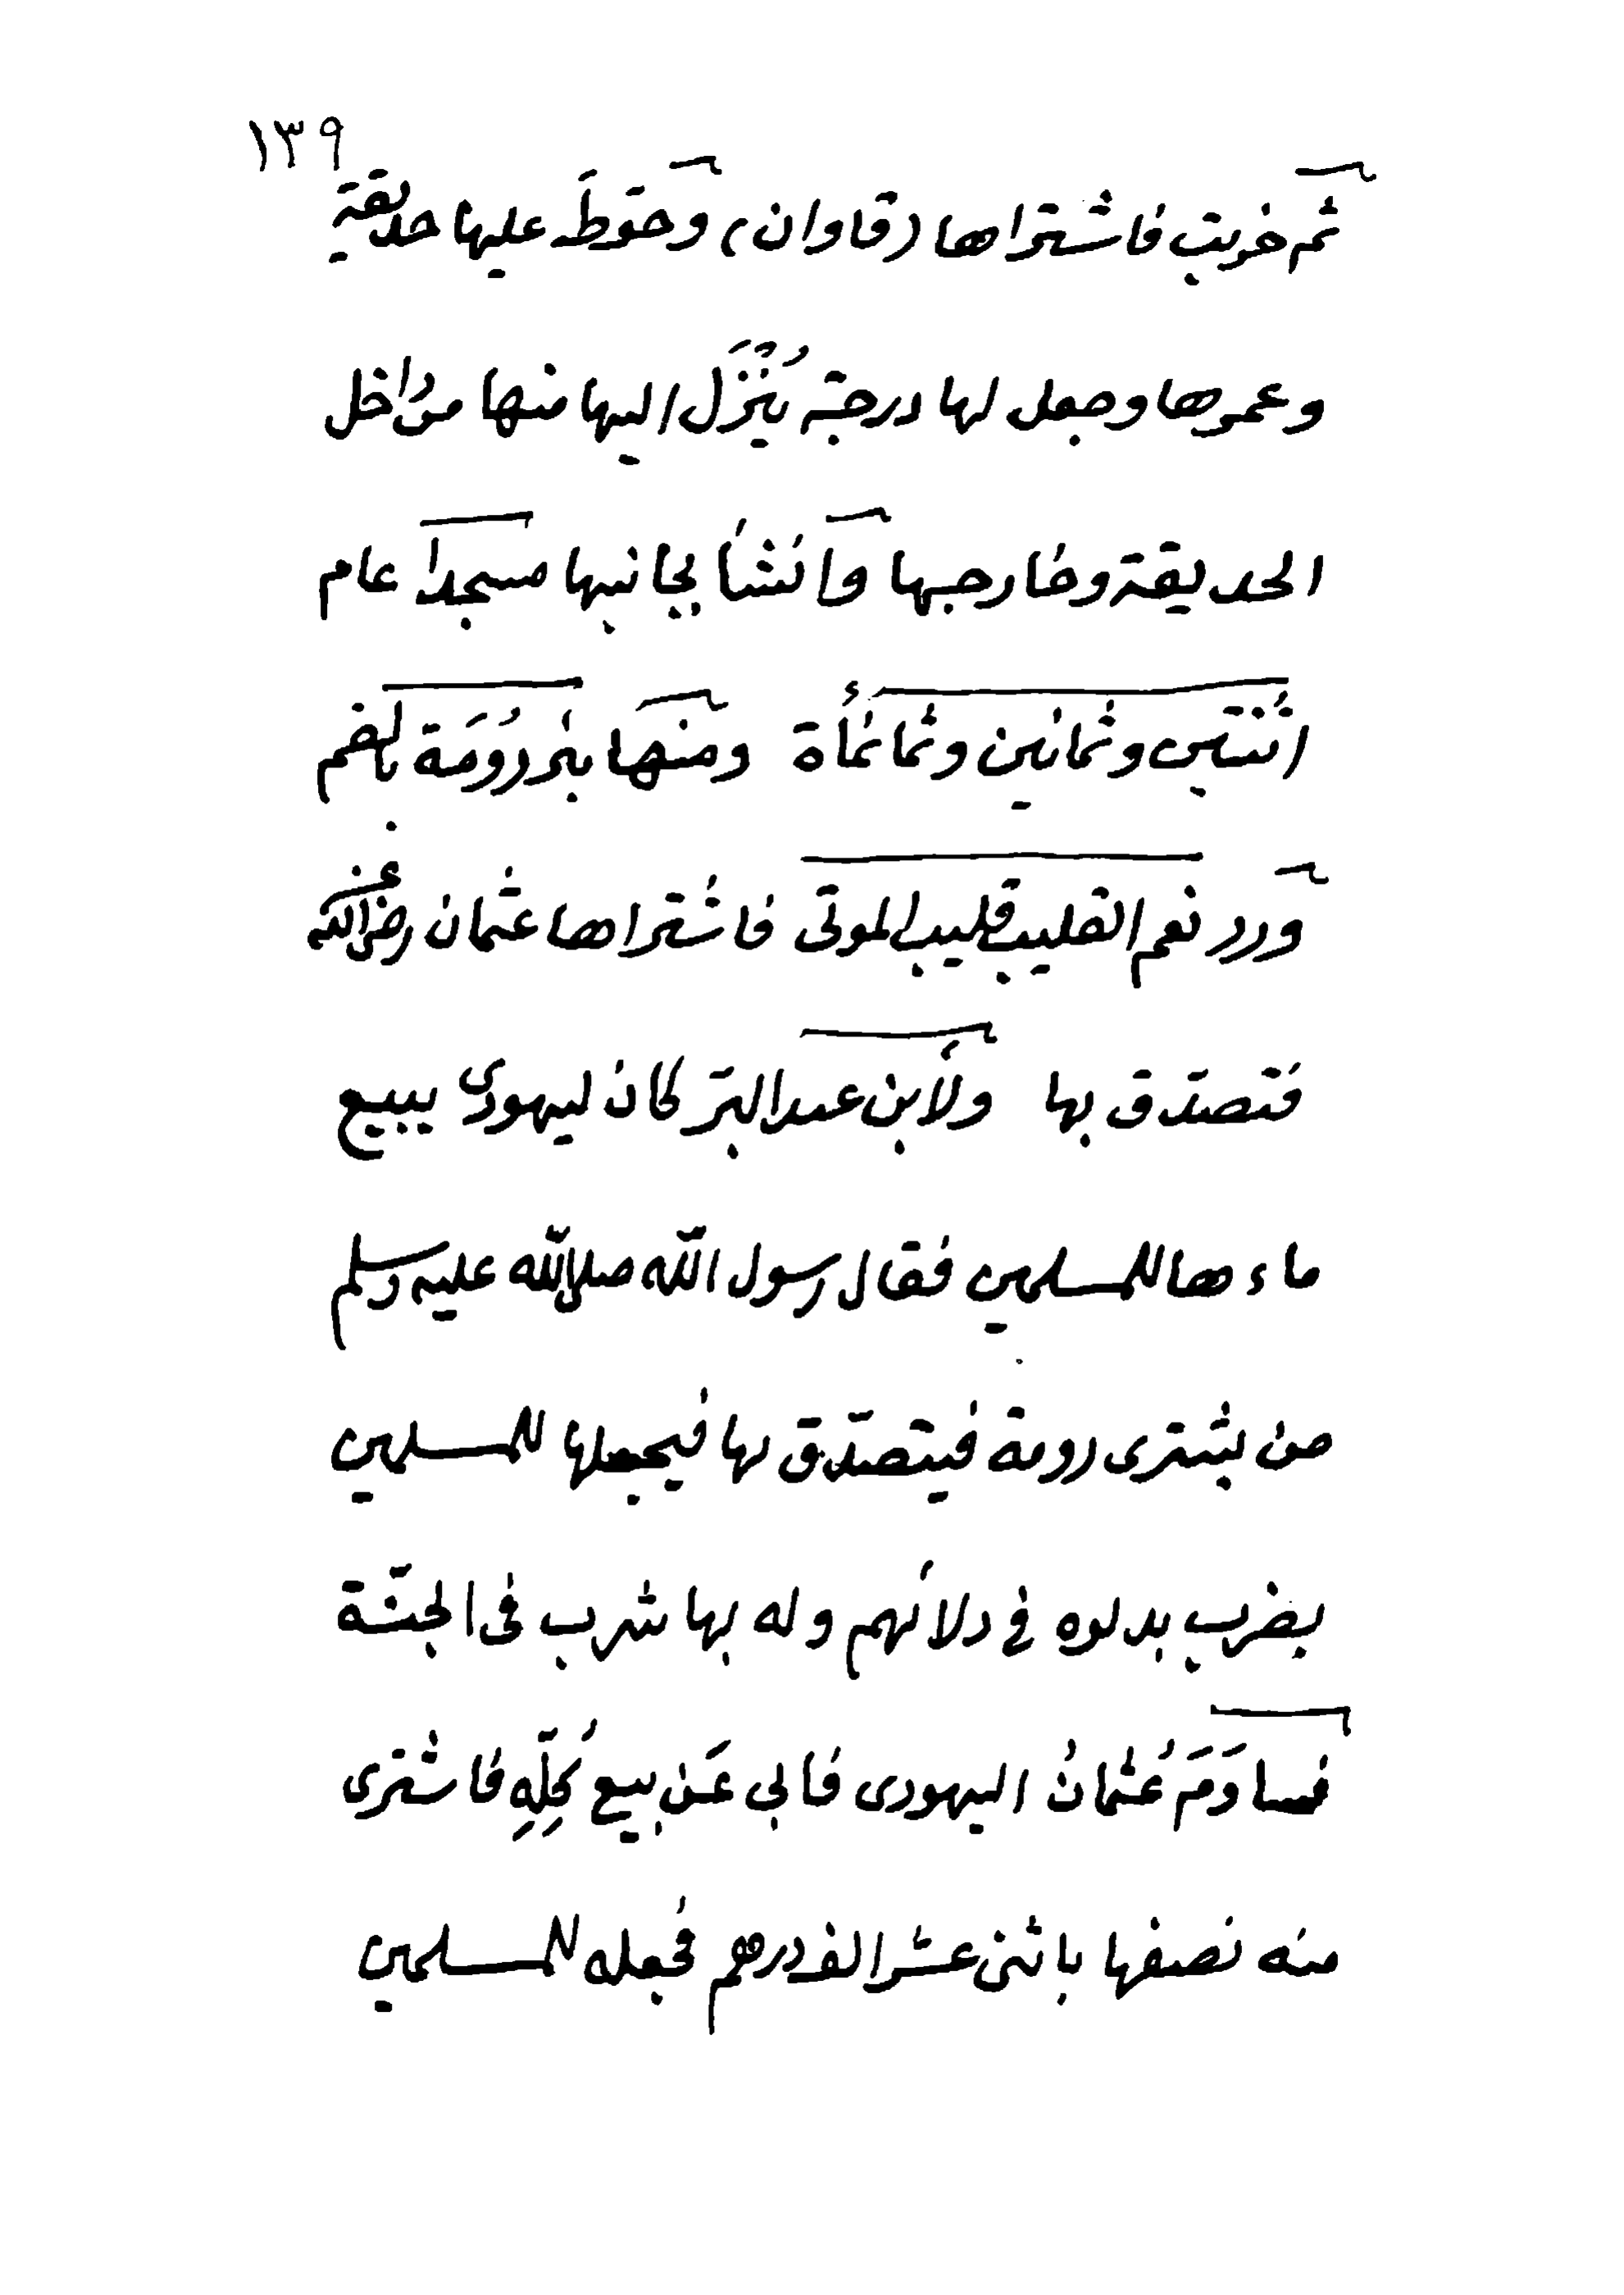 ١٣٩
ثم خربت فاشتراها (قاوان) وحوّطَ عليها حديقة
وعمرها وجعل لها درجة يُنْزَل اليها منها من داخل
الحديقة وخارجها وانشأ بجانبها مسجدا عام
اثنتين وثمانين وثمانمأة ومنها بئر رُومَة بالضم
ورد نعم القليب قليب المزنى فاشتراها عثمان رضى الله عنه
فتصدّق بها ولأبن عبد البرّ كان ليهودى يبيع
ماءها للمسلمين فقال رسول الله صلى الله عليه وسلم
من يشترى رومة فيتصدّق بها فيجعلها للمسلمين
يضرب بدلوه في دلائهم وله بها شرب فى الجنّة
فساوَمَ عُثمانُ اليهودى فابى عَن بيع كُلِّهِ فاشترى
منه نصفها باثنى عشر الف درهم فجعله للمسلمين